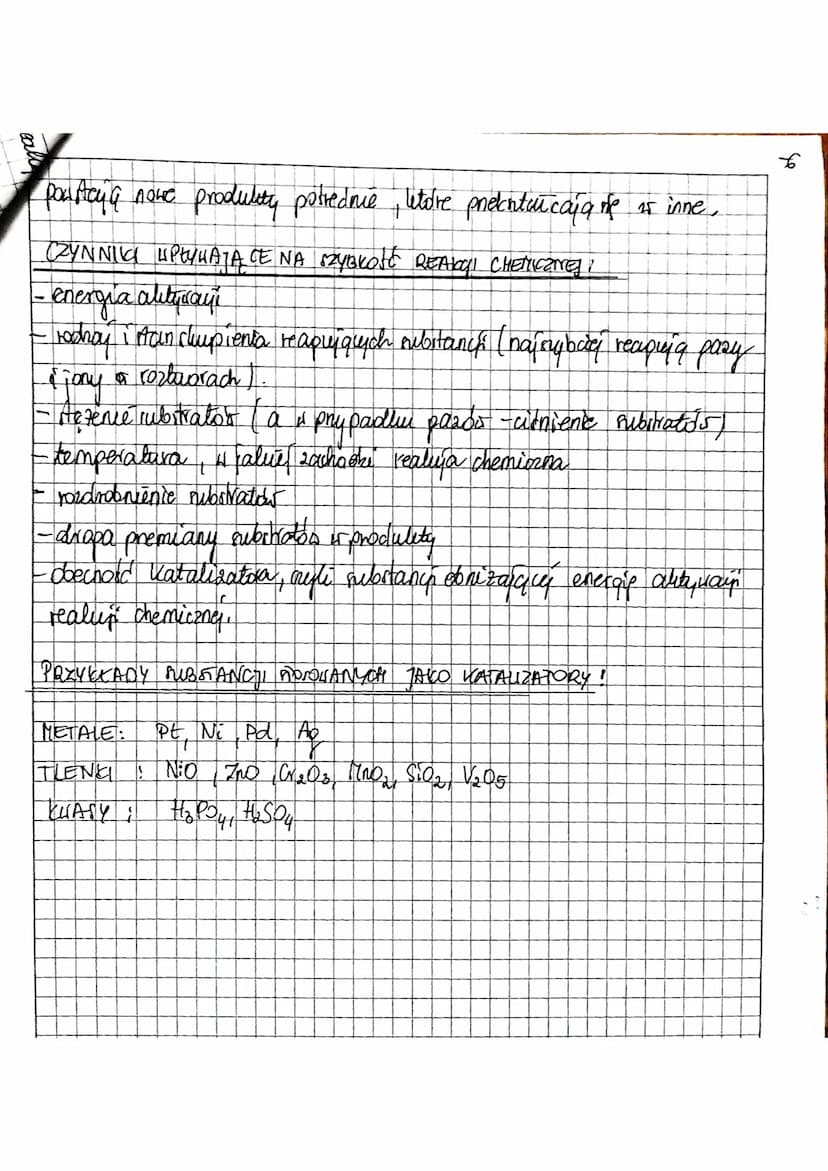 6
powstają nowe produkty pośrednie, które przekształcają się w inne.
CZYNNIKI WPŁYWAJĄCE NA SZYBKOŚĆ REAKCJI CHEMICZNEJ:
- energia aktywacji
- rodzaj i stan skupienia reagujących substancji (najszybciej reagują gazy
i jony w roztworach).
- stężenie substratów (a w przypadku gazów - ciśnienie substratów)
- temperatura, w jakiej zachodzi reakcja chemiczna
- rozdrobnienie substratów
- droga przemiany substratów w produkty
- obecność katalizatora, czyli substancji obniżającej energię aktywacji
reakcji chemicznej.
PRZYKŁADY SUBSTANCJI STOSOWANYCH JAKO KATALIZATORY!
METALE: Pt, Ni, Pd, Ag
TLENKI: NiO, ZnO, Cr₂O₃, MnO₂, SiO₂, V₂O₅
KWASY: H₃PO₄, H₂SO₄